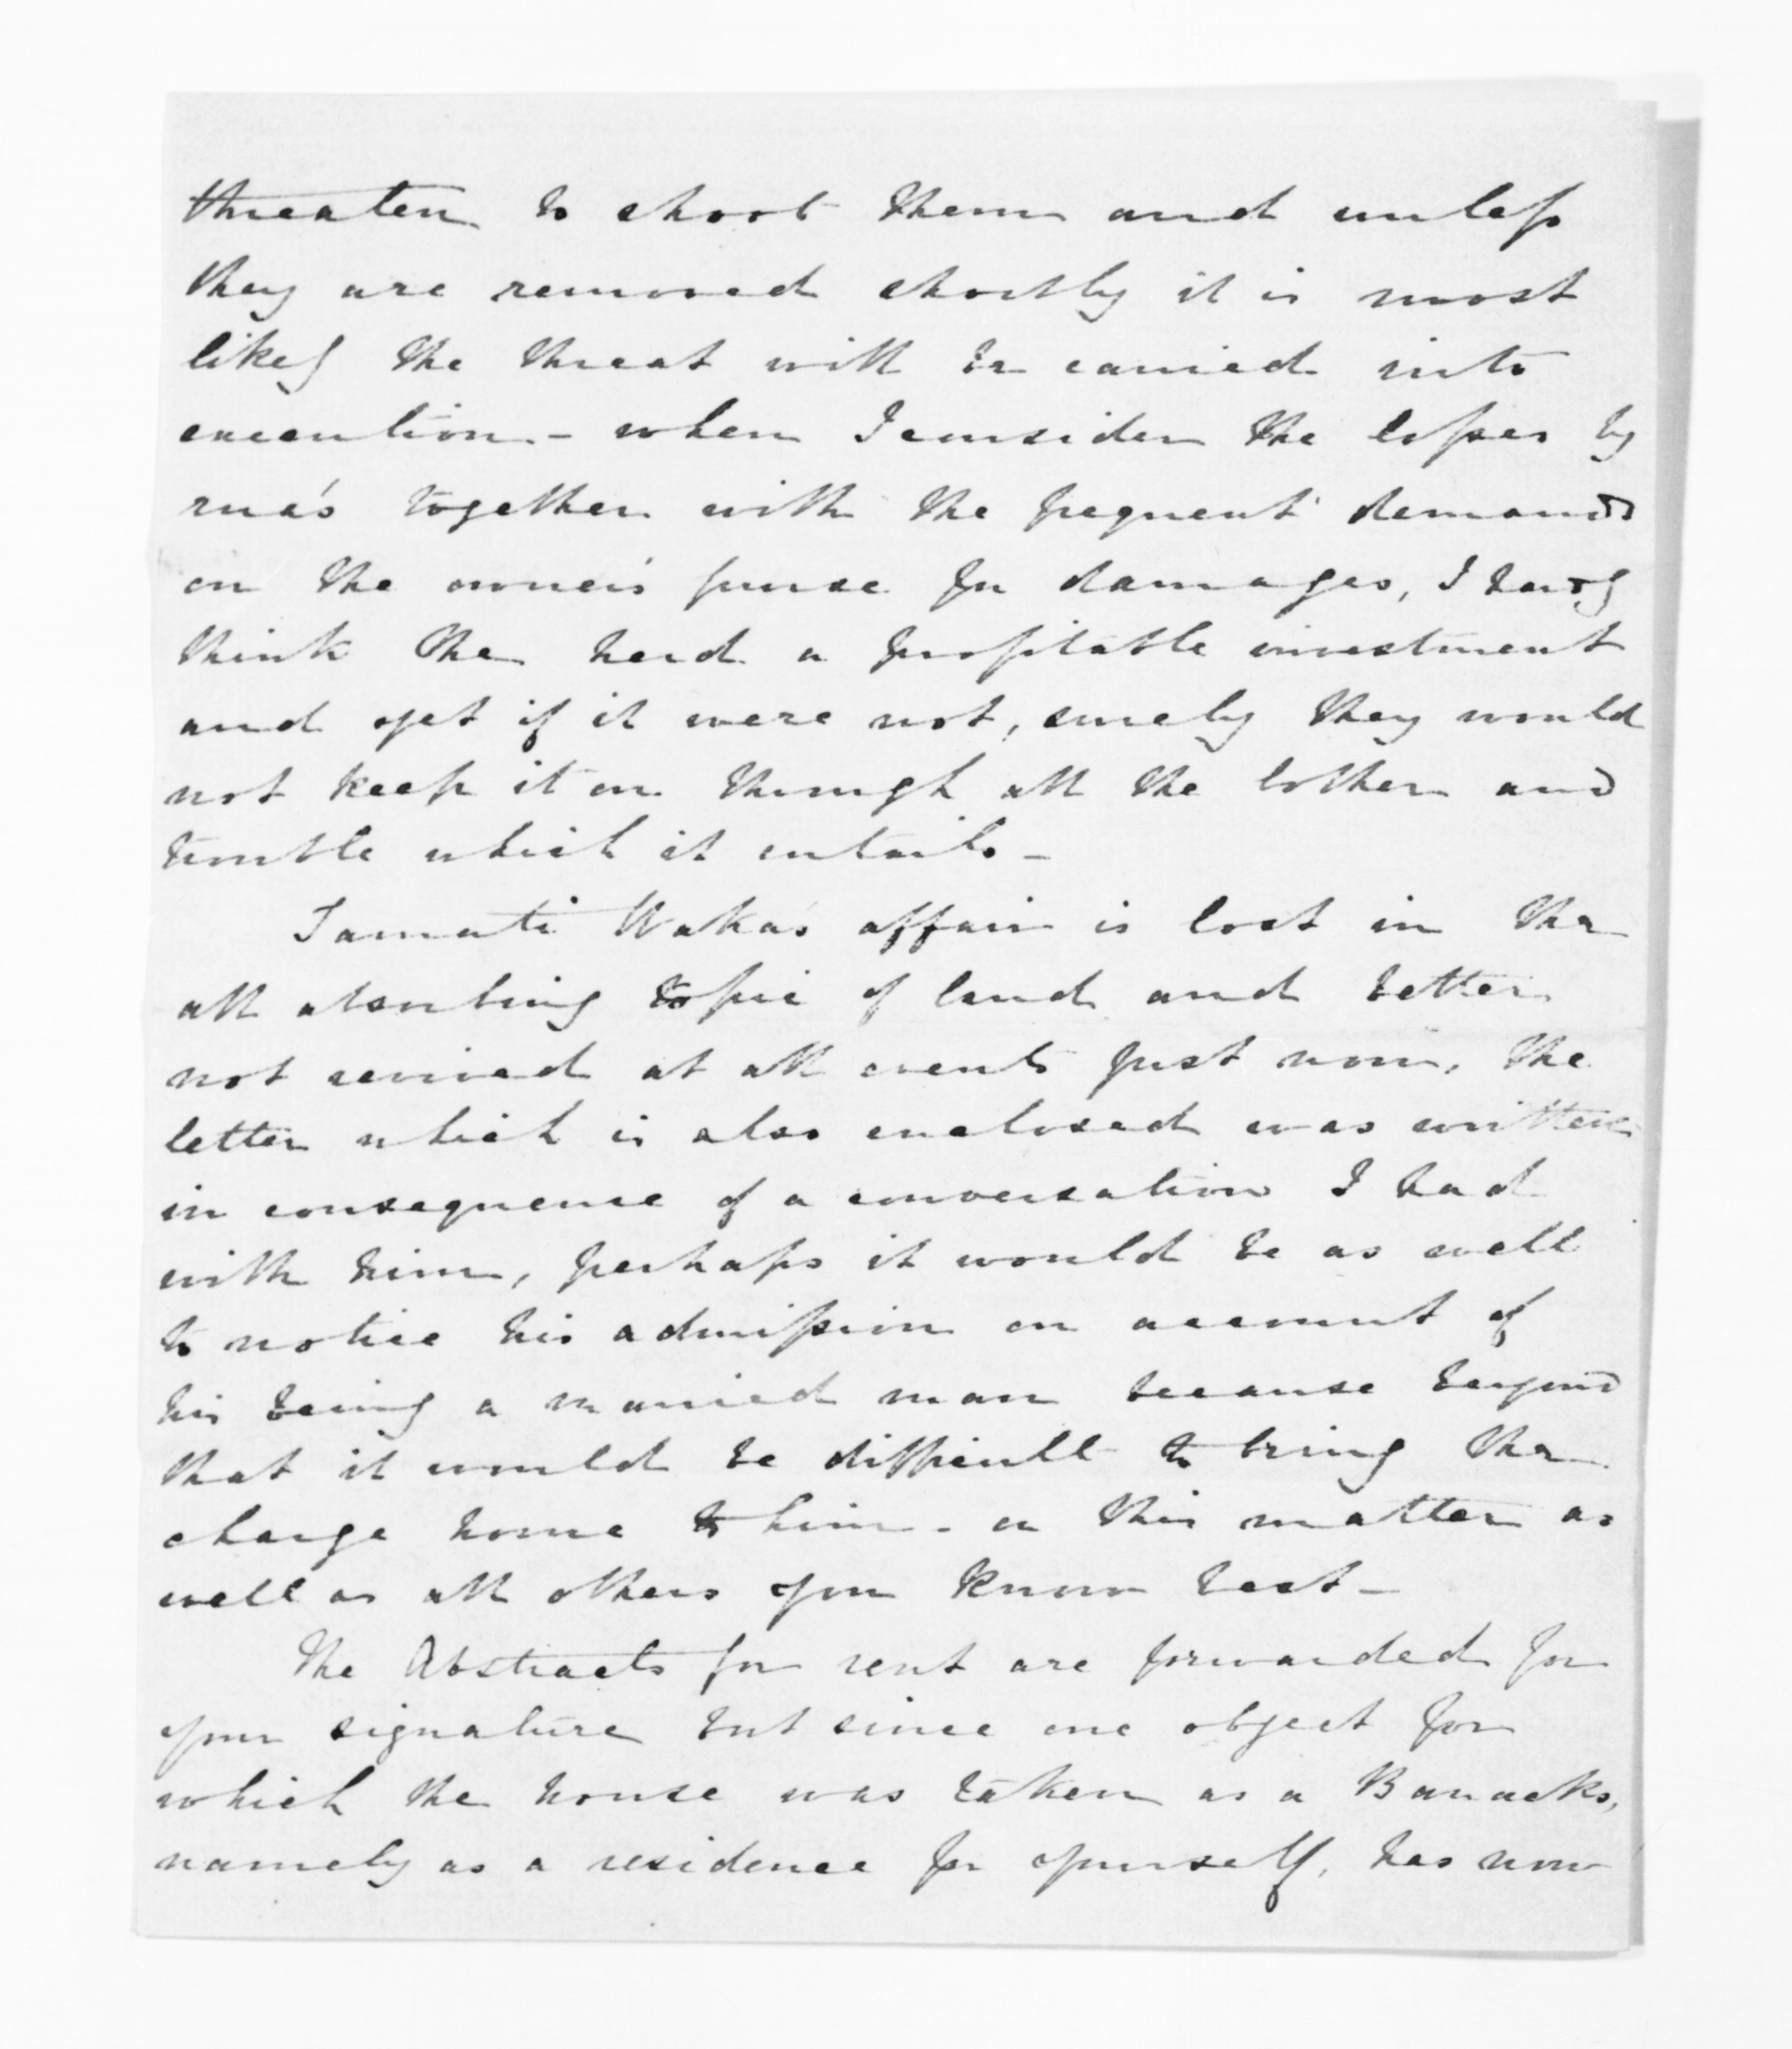 threaten to shoot them and unless
they are removed shortly it is most
likely the threat will be carried into
execution - when I consider the losses by
rua's together with the frequent demands
on the owner's purse for damages, I hardly
think the herd a profitable investment
and yet if it were not, surely they would
not keep it on through all the bother and
trouble which it entails -
Tamati Waka's affair is lost in the
all absorbing topic of land and better
not revived at all events just now. The
letter which is also enclosed was written
in consequence of a conversation I had
with him, perhaps it would be as well
to notice his admission on account of
his being a married man because beyond
that it would be difficult to bring the
charge home to him - on this matter as
well as all others you know best -
The Abstracts for rent are forwarded for
your signature but since one object for
which the house was taken as a Barracks,
namely as a residence for yourself, has now